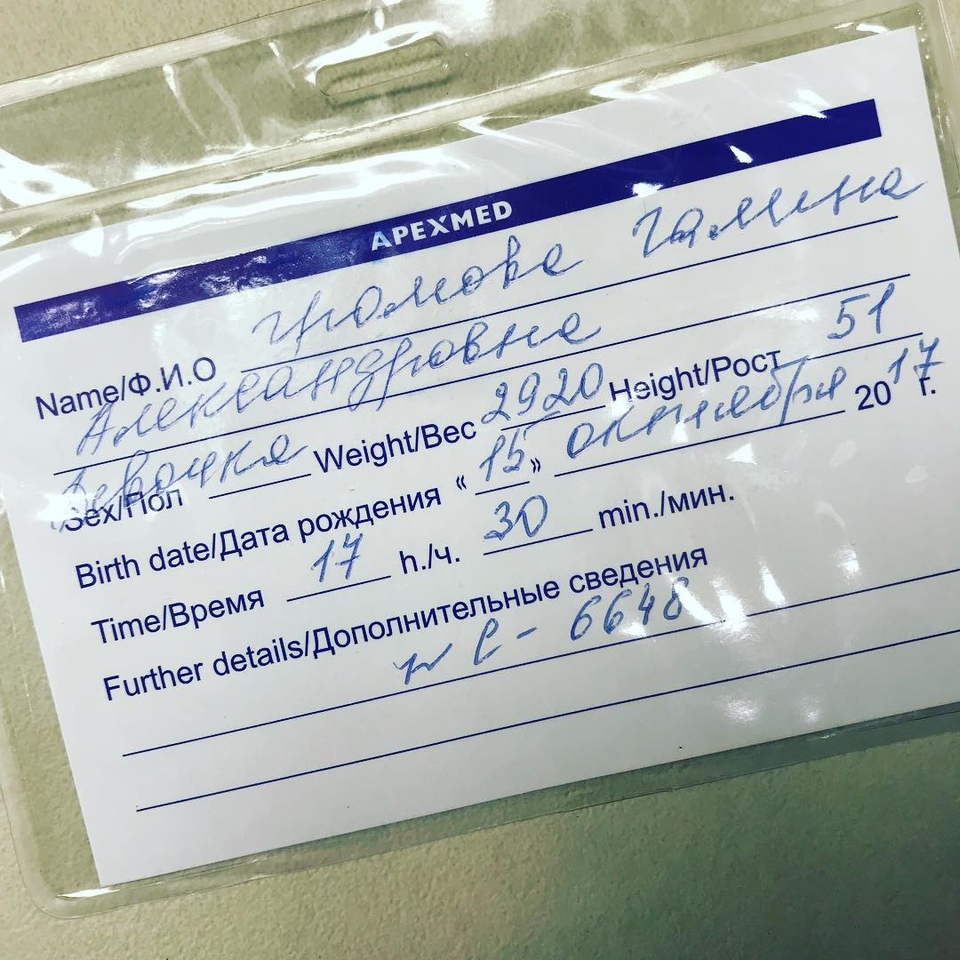 APEXMED
Name/Ф.И.О Громова Галина
Александровна
Sex/Пол девочка Weight/Вес 2920 Height/Рост 51
Birth date/Дата рождения «15» октября 2017 г.
Time/Время 17 h./ч. 30 min./мин.
Further details/Дополнительные сведения
6648